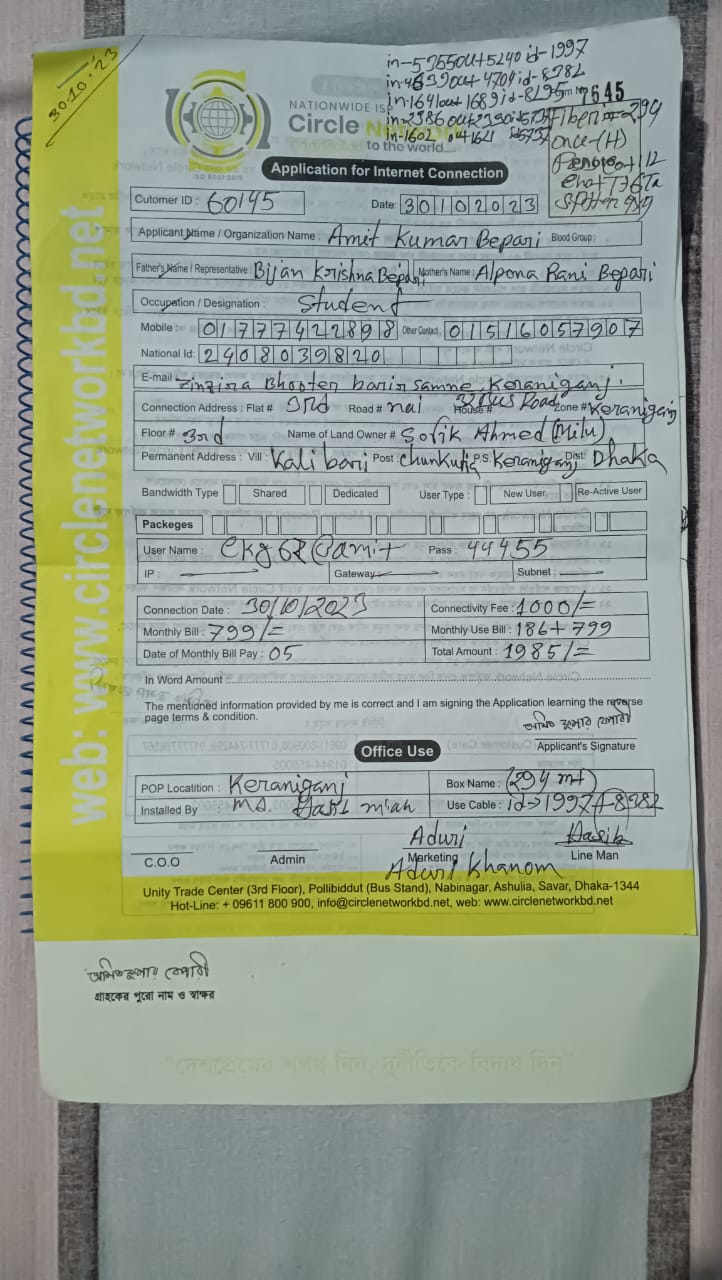 30.10.23
in-5
id-1997
in-1602
645
NATIONWIDE ISP
Circle Network
to the world....
ISO 9001:2015
once-(H)
Application for Internet Connection
Cutomer ID : 60145 Date: 30102023
Applicant Name / Organization Name : Amit Kumar Bepari Blood Group :
Father's Name / Representative : Bijan Krishna Bepari Mother's Name : Alpona Rani Bepari
Occupation / Designation : Student
Mobile : 01777422898 Other Contact : 01516057907
National Id: 2408039820
E-mail : Zinzira Bhooter barir samne, Keraniganj.
Connection Address : Flat # 3rd Road # nai House # Road Zone # Keraniganj
Floor # 3rd Name of Land Owner # Sofik Ahmed (Milu)
Permanent Address : Vill : Kalibari Post : Chunkutia P.S : Keraniganj Dist : Dhaka
Bandwidth Type Shared Dedicated User Type : New User Re-Active User
Packeges
User Name : Pass : 44455
IP : Gateway: Subnet :
Connection Date : 30/10/2023 Connectivity Fee : 1000/=
Monthly Bill : 799/= Monthly Use Bill : 186+799
Date of Monthly Bill Pay : 05 Total Amount : 1985/=
In Word Amount :
The mentioned information provided by me is correct and I am signing the Application learning the reverse
page terms & condition.
অমিত কুমার বেপারী
Applicant's Signature
Office Use
POP Locatition : Keraniganj Box Name : (294 mt)
Installed By : MD. miah Use Cable : id→1997
Aduri Hasib
C.O.O Admin Marketing Line Man
Aduri Khanom
Unity Trade Center (3rd Floor), Pollibiddut (Bus Stand), Nabinagar, Ashulia, Savar, Dhaka-1344
Hot-Line: + 09611 800 900, info@circlenetworkbd.net, web: www.circlenetworkbd.net
web: www.circlenetworkbd.net
অমিত কুমার বেপারী
গ্রাহকের পুরো নাম ও স্বাক্ষর
"দেশপ্রেমের শপথ নিন, দুর্নীতিকে বিদায় দিন"